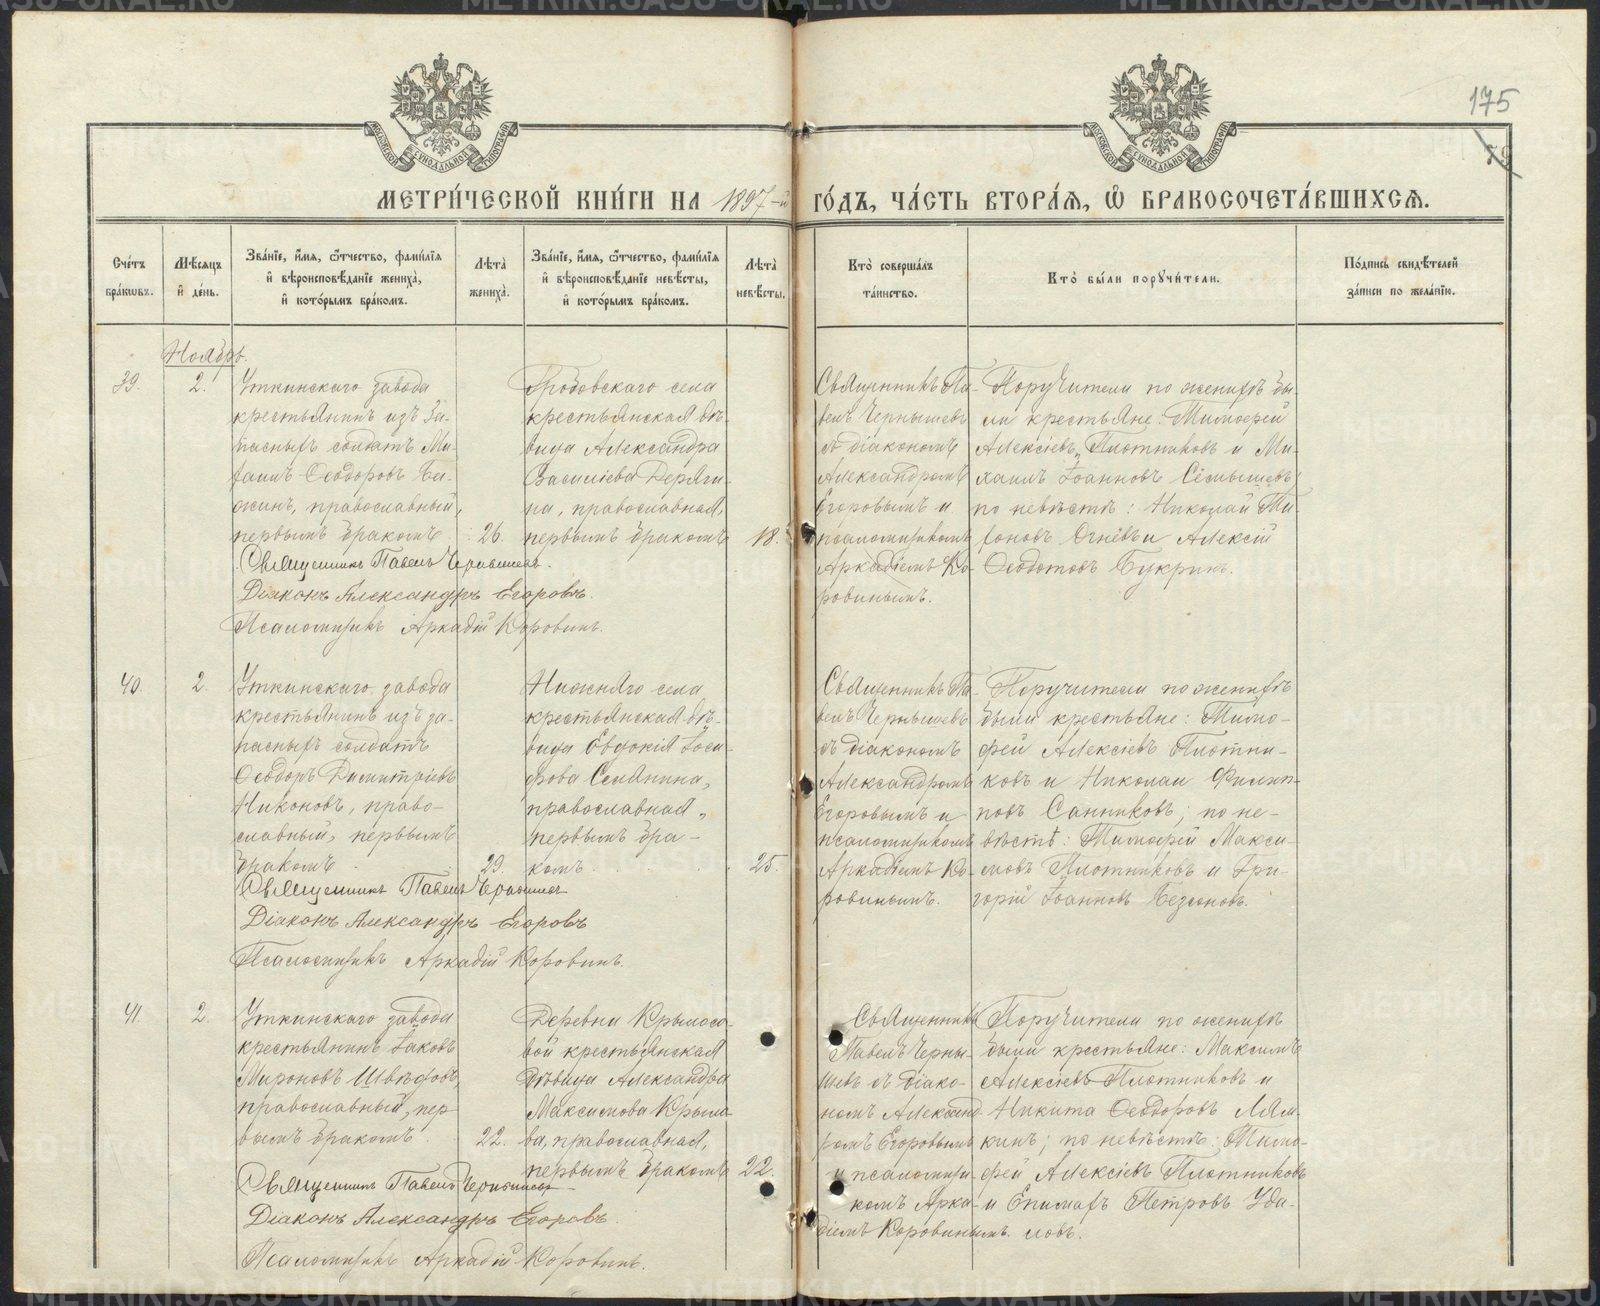 175
МЕТРИ́ЧЕСКОЙ КНИ́ГИ НА 1897-й ГО́ДЪ, ЧА́СТЬ ВТОРА́Я, Ѡ҆ БРАКОСОЧЕТА́ВШИХСЯ.
Сче́тъ бра́кωвъ.
Мѣ́сяцъ и҆ де́нь.
Зва́нїе, и҆́мя, ѻ҆́тчество, фами́лїя и҆ вѣроисповѣ́данїе жениха̀, и҆ кото́рымъ бра́комъ.
Лѣта̀ жениха̀.
Зва́нїе, и҆́мя, ѻ҆́тчество, фами́лїя и҆ вѣроисповѣ́данїе невѣ́сты, и҆ кото́рымъ бра́комъ.
Лѣта̀ невѣ́сты.
Кто̀ соверша́лъ та́инство.
Кто̀ бы́ли порꙋчи́тели.
По́дпись свидѣ́телей за́писи по жела́нїю.
Ноябрь.
39.
2.
Уткинскаго завода
крестьянинъ изъ за-
пасныхъ солдатъ Ми-
хаилъ Ѳеодоровъ
православный,
первымъ бракомъ
26.
Гробовскаго села
крестьянская дѣ-
вица Александра
Василіева Деряги-
на, православная,
первымъ бракомъ
18.
Священникъ Па-
велъ Чернышевъ
съ діакономъ
Александромъ
Егоровымъ и
псаломщикомъ
Аркадіемъ Ко-
ровинымъ.
Поручители по женихѣ бы-
ли крестьяне: Тимофей
Алексіевъ Плотниковъ и Ми-
хаилъ Іоанновъ
по невѣстѣ: Николай Ти-
хоновъ Огнёвъ и Алексій
Ѳеодотовъ Букринъ.
Священникъ Павелъ Чернышевъ.
Діаконъ Александръ Егоровъ.
Псаломщикъ Аркадій Коровинъ.
40.
2.
Уткинскаго завода
крестьянинъ изъ за-
пасныхъ солдатъ
Ѳеодоръ Димитріевъ
Никоновъ, право-
славный, первымъ
бракомъ
29.
Нижняго села
крестьянская дѣ-
вица Евдокія Іоси-
фова Семянина,
православная,
первымъ бра-
комъ
25.
Священникъ Па-
велъ Чернышевъ
съ діакономъ
Александромъ
Егоровымъ и
псаломщикомъ
Аркадіемъ Ко-
ровинымъ.
Поручители по женихѣ
были крестьяне: Тимо-
фей Алексіевъ Плотни-
ковъ и Николай Филип-
повъ Санниковъ; по не-
вѣстѣ: Тимофей Макси-
мовъ Плотниковъ и Гри-
горій Іоанновъ Безсоновъ.
Священникъ Павелъ Чернышевъ
Діаконъ Александръ Егоровъ
Псаломщикъ Аркадій Коровинъ.
41.
2.
Уткинскаго завода
крестьянинъ Іаковъ
Мироновъ Швецовъ,
православный, пер-
вымъ бракомъ.
22.
Деревни Крылосо-
вой крестьянская
дѣвица Александра
Максимова Крыло-
ва, православная,
первымъ бракомъ
22.
Священникъ
Павелъ Черны-
шевъ съ діако-
номъ Александ-
ромъ Егоровымъ
и псаломщи-
комъ Арка-
діемъ Коровинымъ.
Поручители по женихѣ
были крестьяне: Максимъ
Алексіевъ Плотниковъ и
Никита Ѳеодоровъ Лям-
кинъ; по невѣстѣ: Тимо-
фей Алексіевъ Плотниковъ
и Епимахъ Петровъ Уда-
ловъ.
Священникъ Павелъ Чернышевъ
Діаконъ Александръ Егоровъ.
Псаломщикъ Аркадій Коровинъ.
METRIKI.GASO-URAL.RU